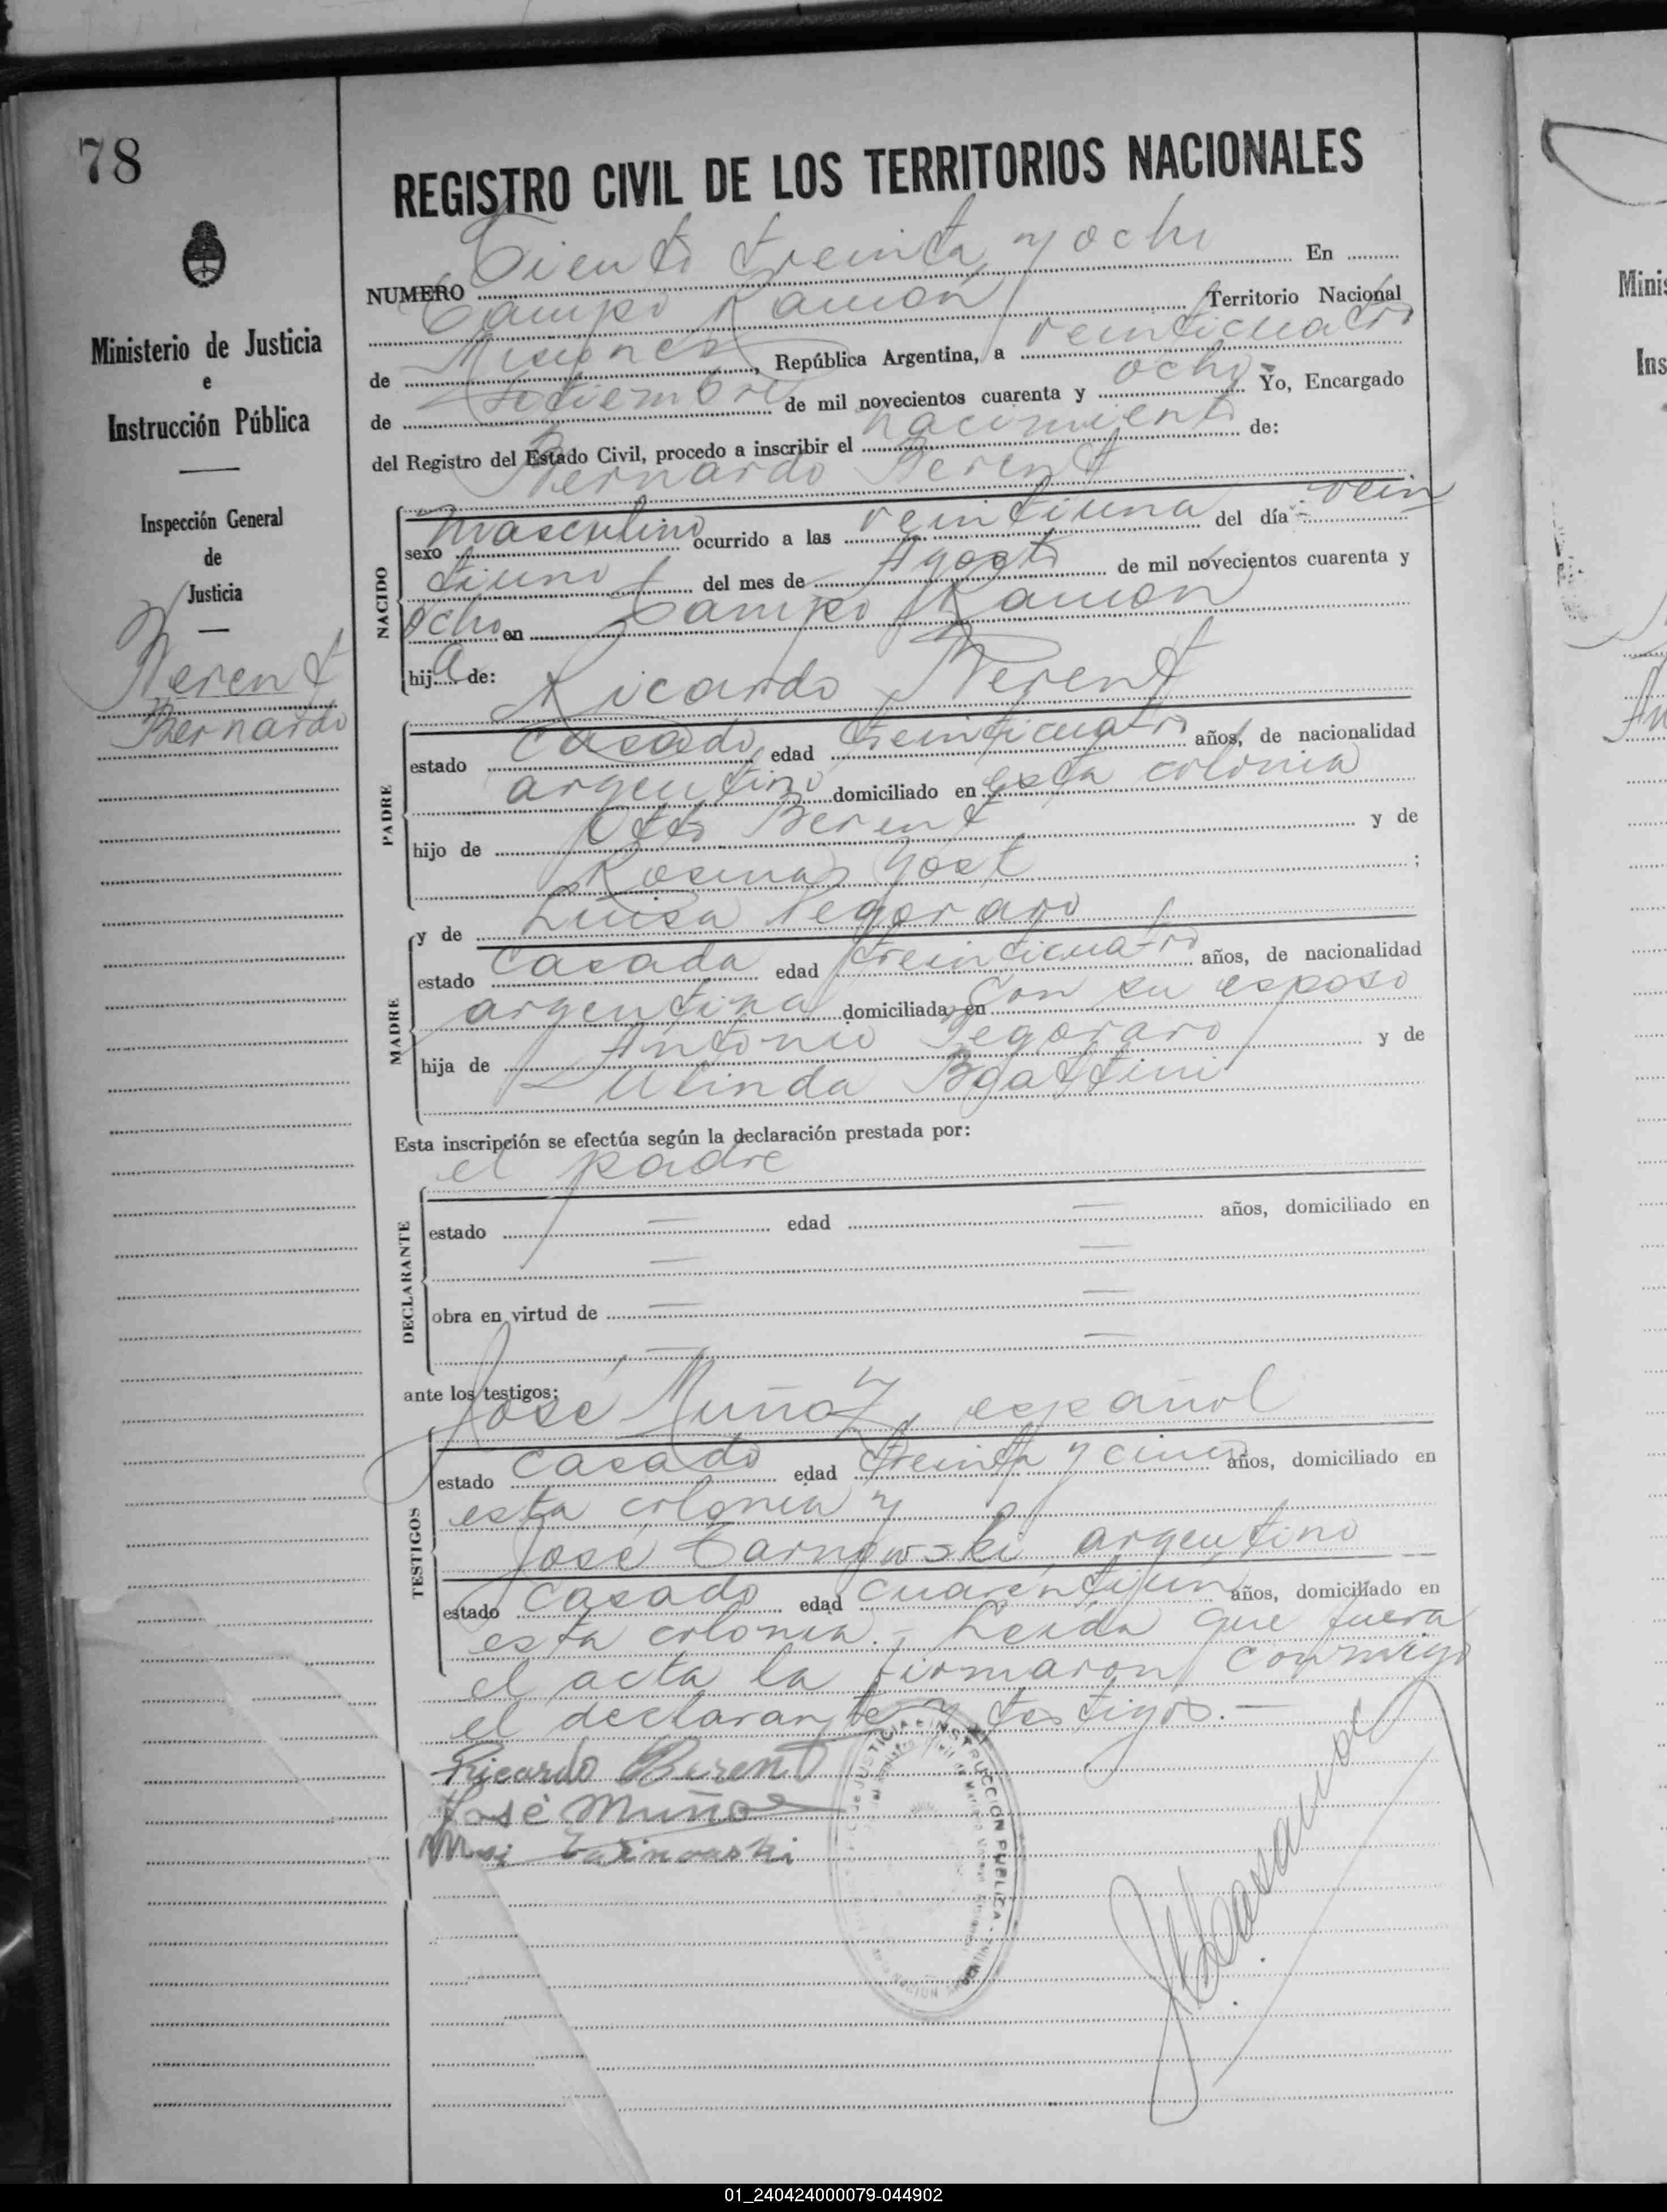 78
Ministerio de Justicia
e
Instrucción Pública
Inspección General
de
Justicia
Berent
Bernardo
REGISTRO CIVIL DE LOS TERRITORIOS NACIONALES
NUMERO Ciento treinta y ocho En
Campo Ramón Territorio Nacional
de Misiones, República Argentina, a veinticuatro
de Setiembre de mil novecientos cuarenta y ocho Yo, Encargado
del Registro del Estado Civil, procedo a inscribir el nacimiento de:
Bernardo Berent
NACIDO
sexo masculino ocurrido a las veintiuna del día vein
tiuno del mes de Agosto de mil novecientos cuarenta y
ocho en Campo Ramón
hij.... de:
Ricardo Berent
PADRE
estado casado edad treinticuatro años, de nacionalidad
argentino domiciliado en esta colonia
hijo de Otto Berent y de
Rosina Yost ;
y de Luisa Pegoraro
MADRE
estado casada edad treinticuatro años, de nacionalidad
argentina domiciliada en con su esposo
hija de Antonio Pegoraro y de
Esta inscripción se efectúa según la declaración prestada por:
el padre
DECLARANTE
estado — edad — años, domiciliado en
— —
obra en virtud de — —
— —
ante los testigos:
José Muñoz, español
TESTIGOS
estado casado edad treinta y cinco años, domiciliado en
esta colonia y
José Tarnowski argentino
estado casado edad cuarentiun años, domiciliado en
esta colonia.- Leída que fuera
el acta la firmaron conmigo
el declarante y testigos.—
Ricardo Berent
José Muñoz
JUSTICIA e INSTRUCCION PUBLICA
01_240424000079-044902